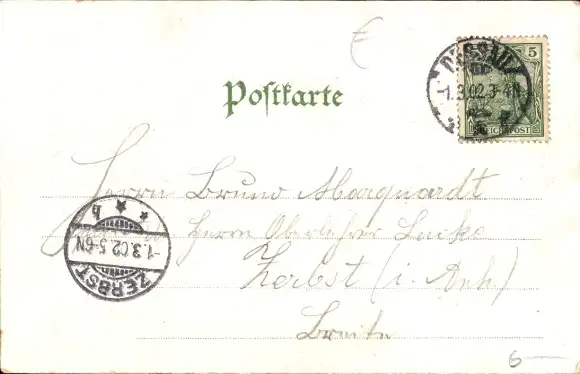 5
DESSAU
-1.3.02.3-4N
REICHSPOST
Postkarte
Herrn Bruno Marquardt
Herrn Oberlehrer
Zerbst (i. Anh)
Breite
b
-1.3.02.5-6N
ZERBST
6